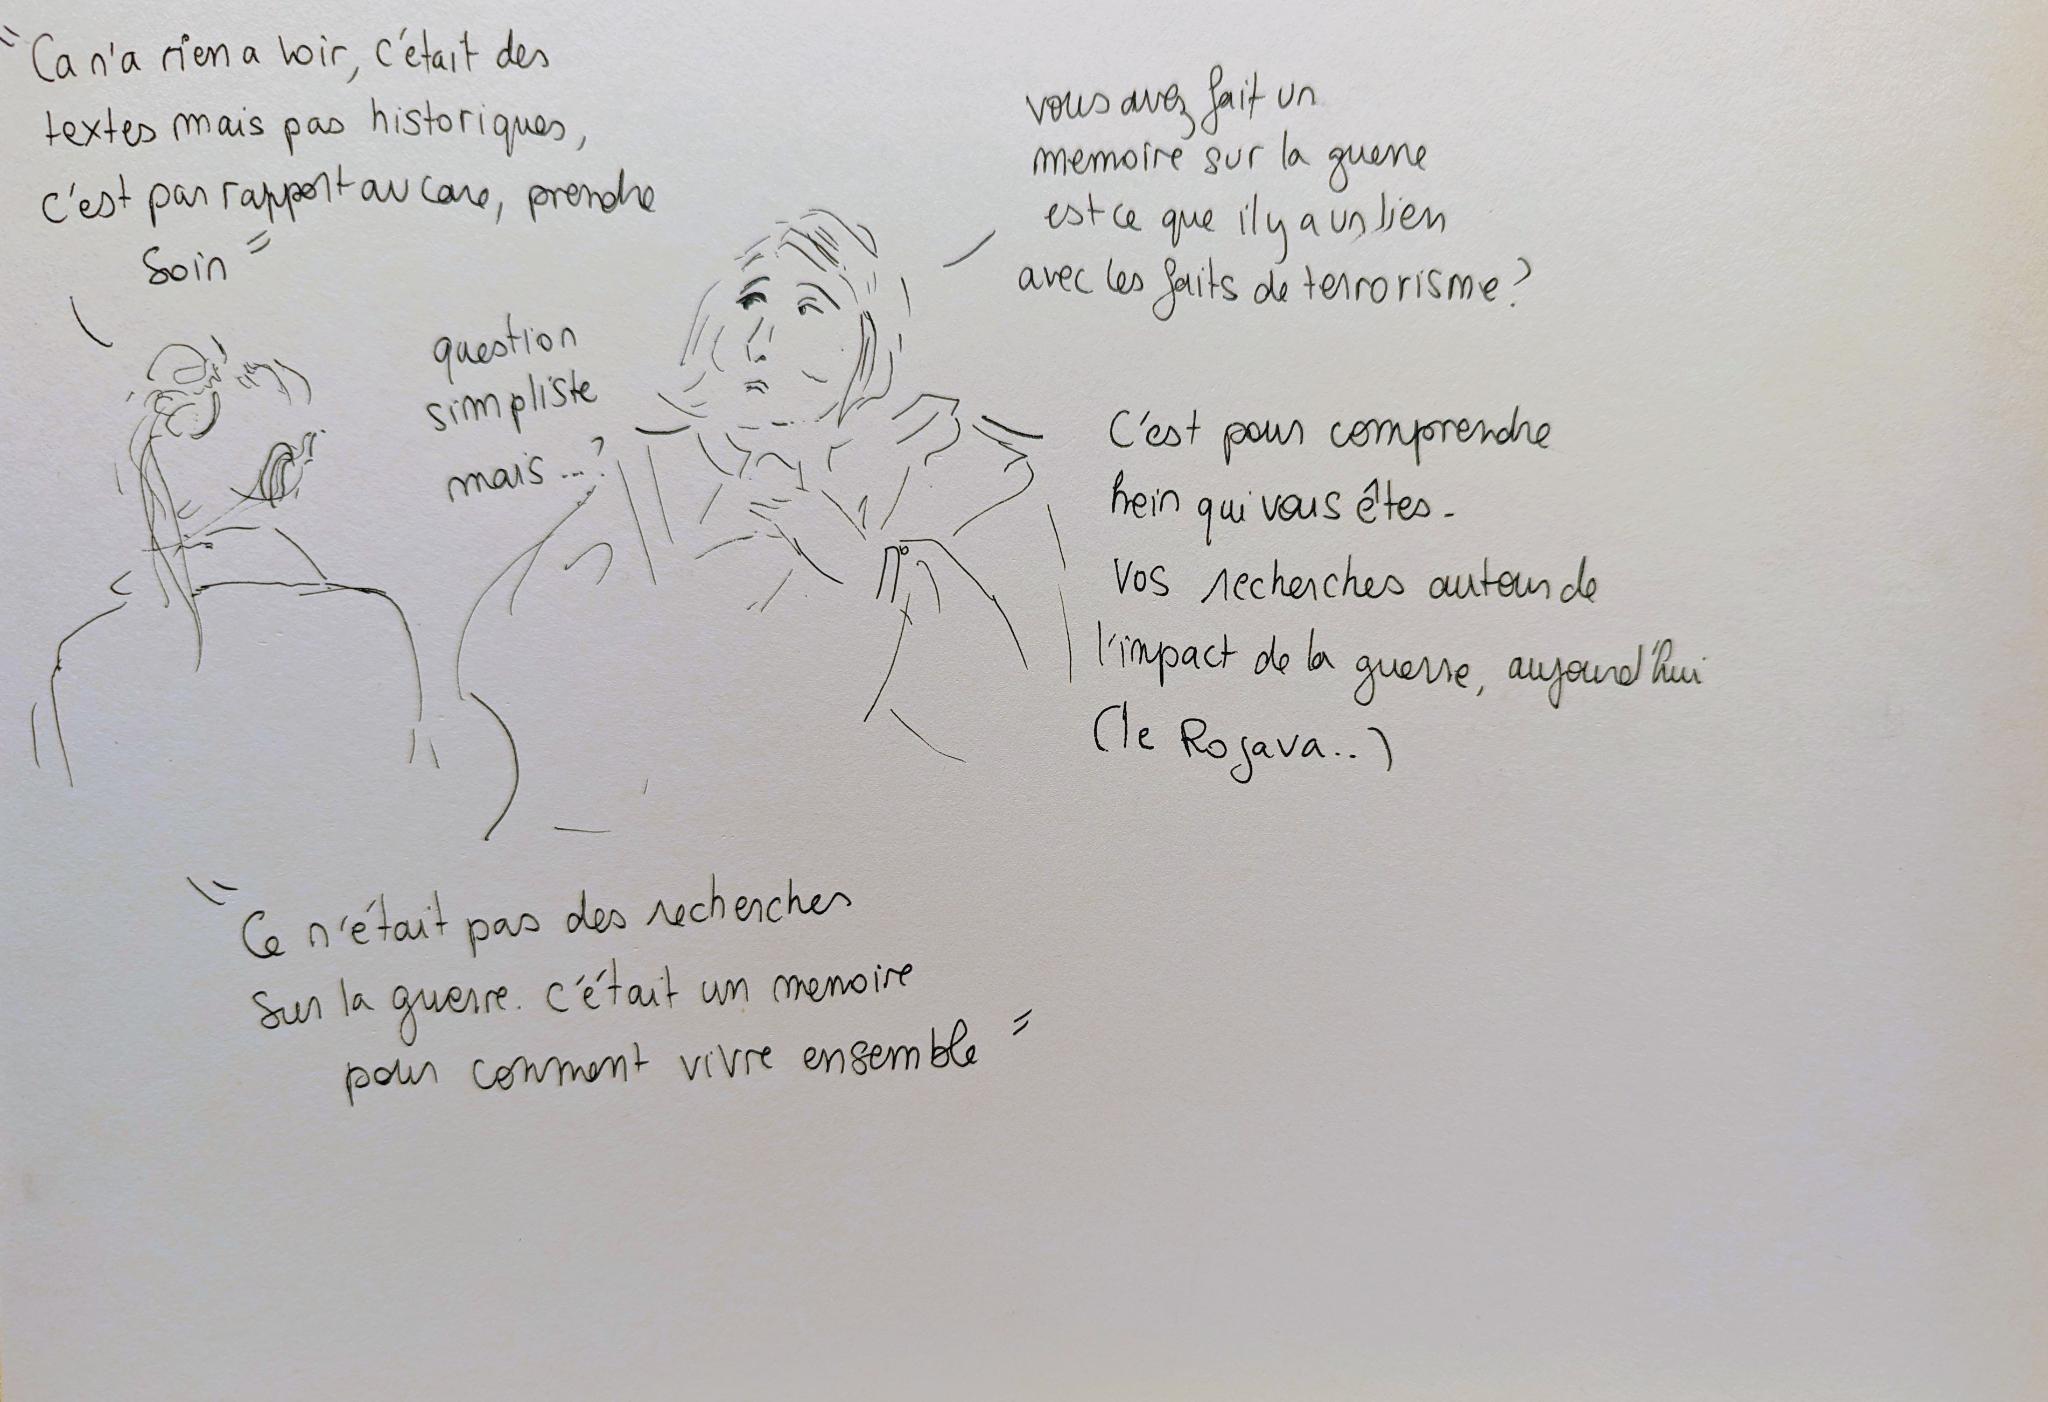 "Ca n'a rien a voir, c'était des
textes mais pas historiques,
c'est par rapport au care, prendre
soin"
vous avez fait un
memoire sur la guerre
est ce que il y a un lien
avec les faits de terrorisme?
question
simpliste
mais...?
C'est pour comprendre
hein qui vous êtes-
Vos recherches autour de
l'impact de la guerre, aujourd'hui
(le Rojava..)
"Ce n'était pas des recherches
sur la guerre. c'était un memoire
pour comment vivre ensemble"